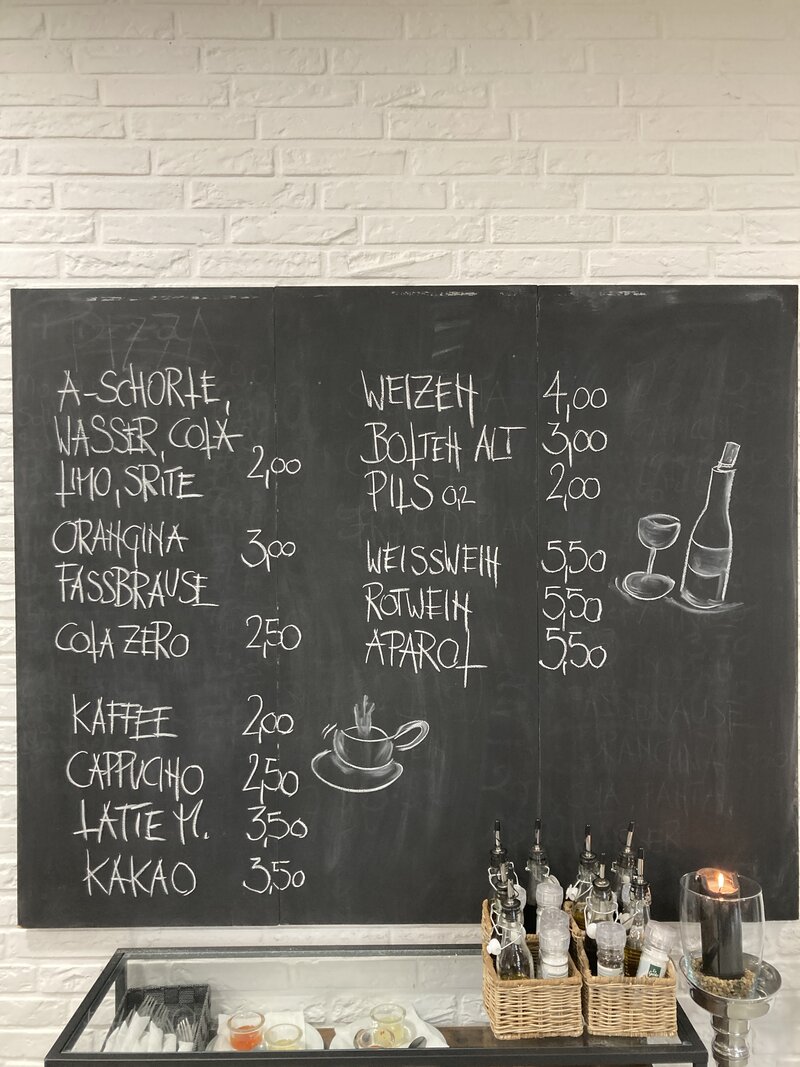 A-SCHORLE,
WASSER, COLA
LIMO, SRITE 2,00
ORANGINA 3,00
FASSBRAUSE
COLA ZERO 2,50
KAFFEE 2,00
CAPPUCINO 2,50
LATTE M. 3,50
KAKAO 3,50
WEIZEN 4,00
BOLTEN ALT 3,00
PILS 0,2 2,00
WEISSWEIN 5,50
ROTWEIN 5,50
APAROL 5,50